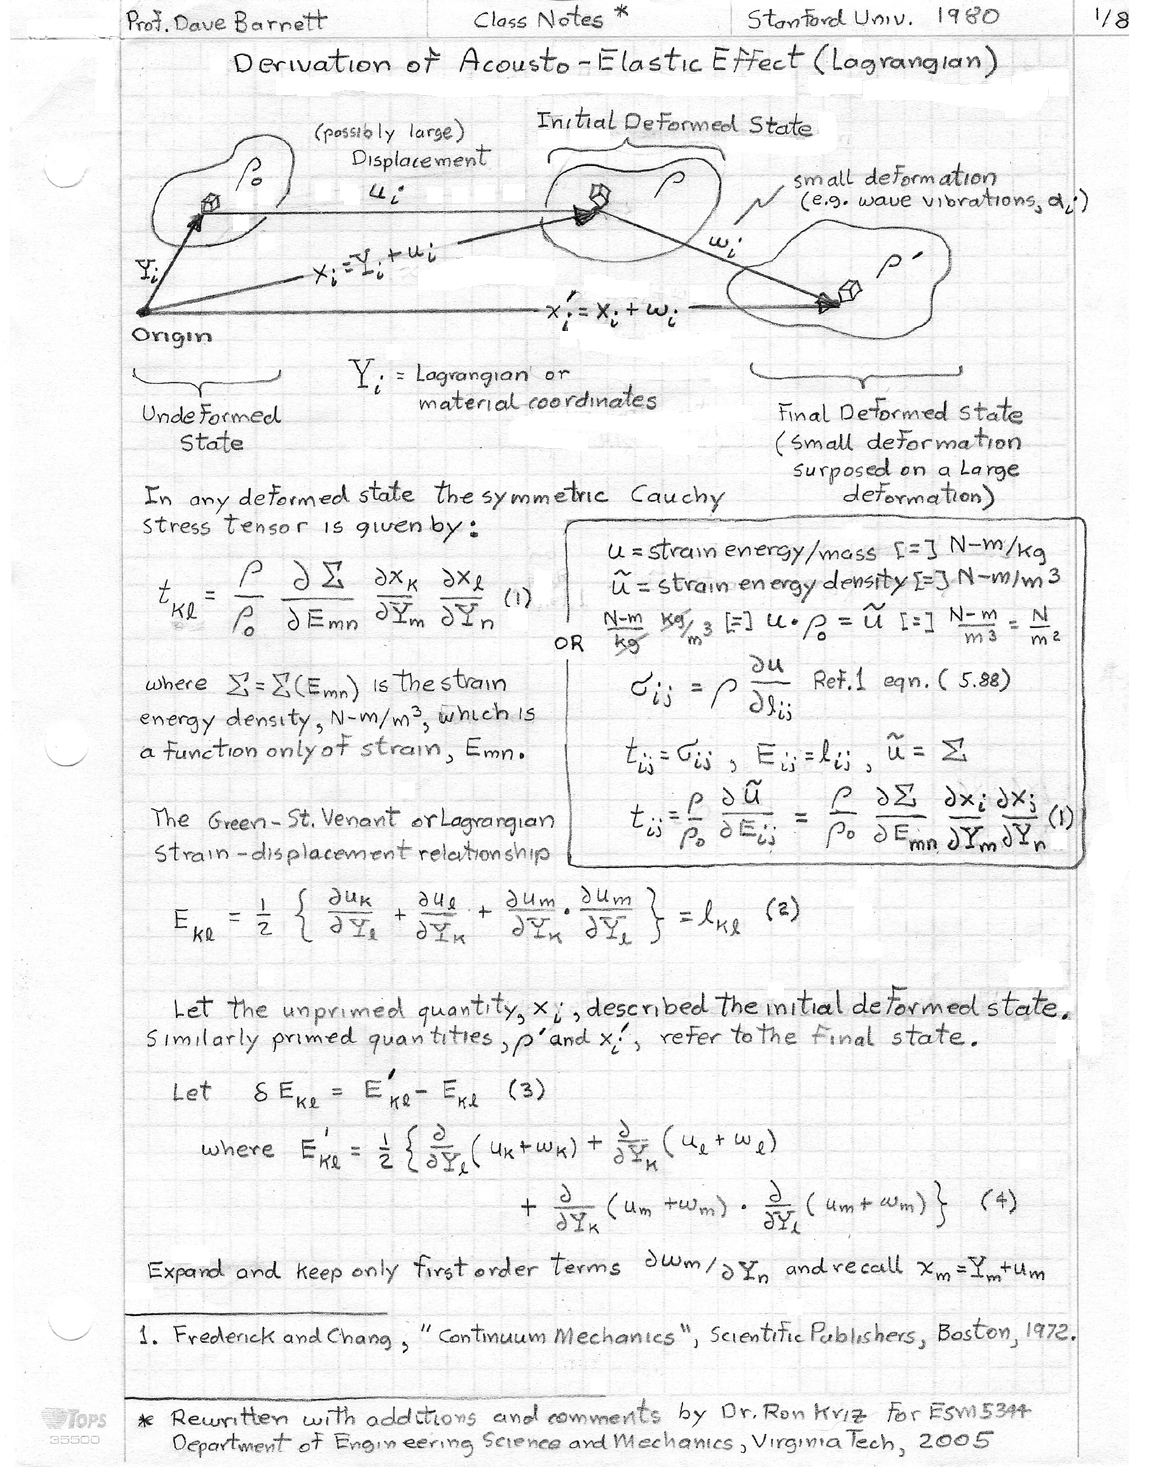 Prof. Dave Barnett Class Notes * Stanford Univ. 1980 1/8
Derivation of Acousto-Elastic Effect (Lagrangian)
Initial Deformed State
(possibly large)
Displacement
u_i
ρ_0
ρ
small deformation
(e.g. wave vibrations, α_i)
w_i
Y_i
x_i = Y_i + u_i
ρ'
x'_i = x_i + w_i
Origin
Y_i = Lagrangian or
material coordinates
Undeformed
State
Final Deformed State
(small deformation
surposed on a Large
deformation)
In any deformed state the symmetric Cauchy
stress tensor is given by:
t_kl = ρ/ρ_0 ∂Σ/∂E_mn ∂x_k/∂Y_m ∂x_l/∂Y_n (1)
OR
u = strain energy/mass [=] N-m/kg
ũ = strain energy density [=] N-m/m³
N-m/kg kg/m³ [=] u·ρ_0 = ũ [=] N-m/m³ = N/m²
σ_ij = ρ ∂u/∂l_ij Ref.1 eqn. (5.88)
t_ij = σ_ij , E_ij = l_ij , ũ = Σ
t_ij = ρ/ρ_0 ∂ũ/∂E_ij = ρ/ρ_0 ∂Σ/∂E_mn ∂x_i/∂Y_m ∂x_j/∂Y_n (1)
where Σ = Σ(E_mn) is the strain
energy density, N-m/m³, which is
a function only of strain, E_mn.
The Green-St. Venant or Lagrangian
strain-displacement relationship
E_kl = 1/2 { ∂u_k/∂Y_l + ∂u_l/∂Y_k + ∂u_m/∂Y_k · ∂u_m/∂Y_l } = l_kl (2)
Let the unprimed quantity, x_i, described the initial deformed state.
Similarly primed quantities, ρ' and x_i', refer to the final state.
Let δE_kl = E'_kl - E_kl (3)
where E'_kl = 1/2 { ∂/∂Y_l (u_k + w_k) + ∂/∂Y_k (u_l + w_l)
+ ∂/∂Y_k (u_m + w_m) · ∂/∂Y_l (u_m + w_m) } (4)
Expand and keep only first order terms ∂w_m/∂Y_n and recall x_m = Y_m + u_m
1. Frederick and Chang, "Continuum Mechanics", Scientific Publishers, Boston, 1972.
* Rewritten with additions and comments by Dr. Ron Kriz for ESM5344
Department of Engineering Science and Mechanics, Virginia Tech, 2005
TOPS
35500